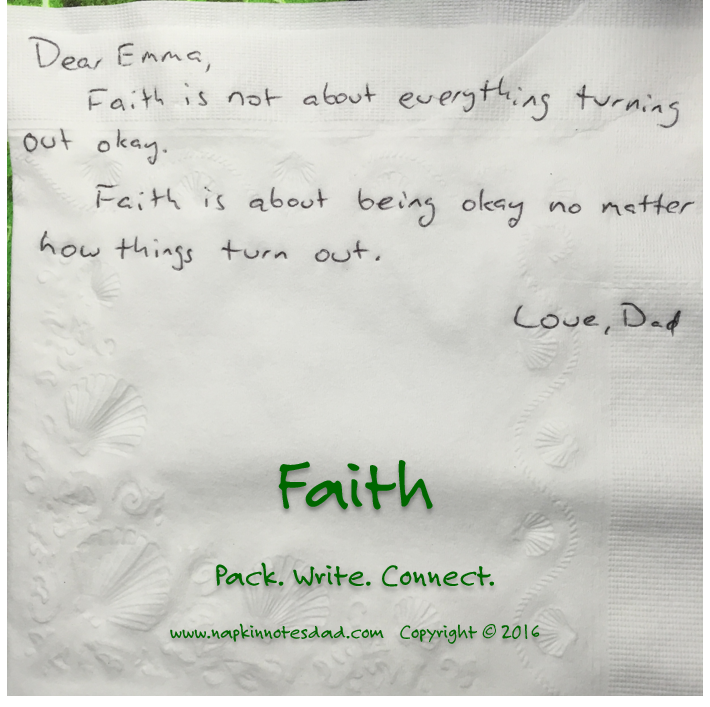 Dear Emma,
Faith is not about everything turning
out okay.
Faith is about being okay no matter
how things turn out.
Love, Dad
Faith
Pack. Write. Connect.
www.napkinnotesdad.com Copyright © 2016